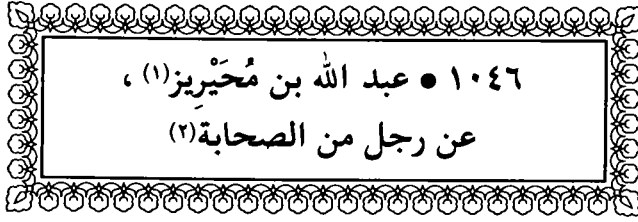 ١٠٤٦ ● عبد الله بن مُحَيْرِيز(١) ،
عن رجل من الصحابة(٢)